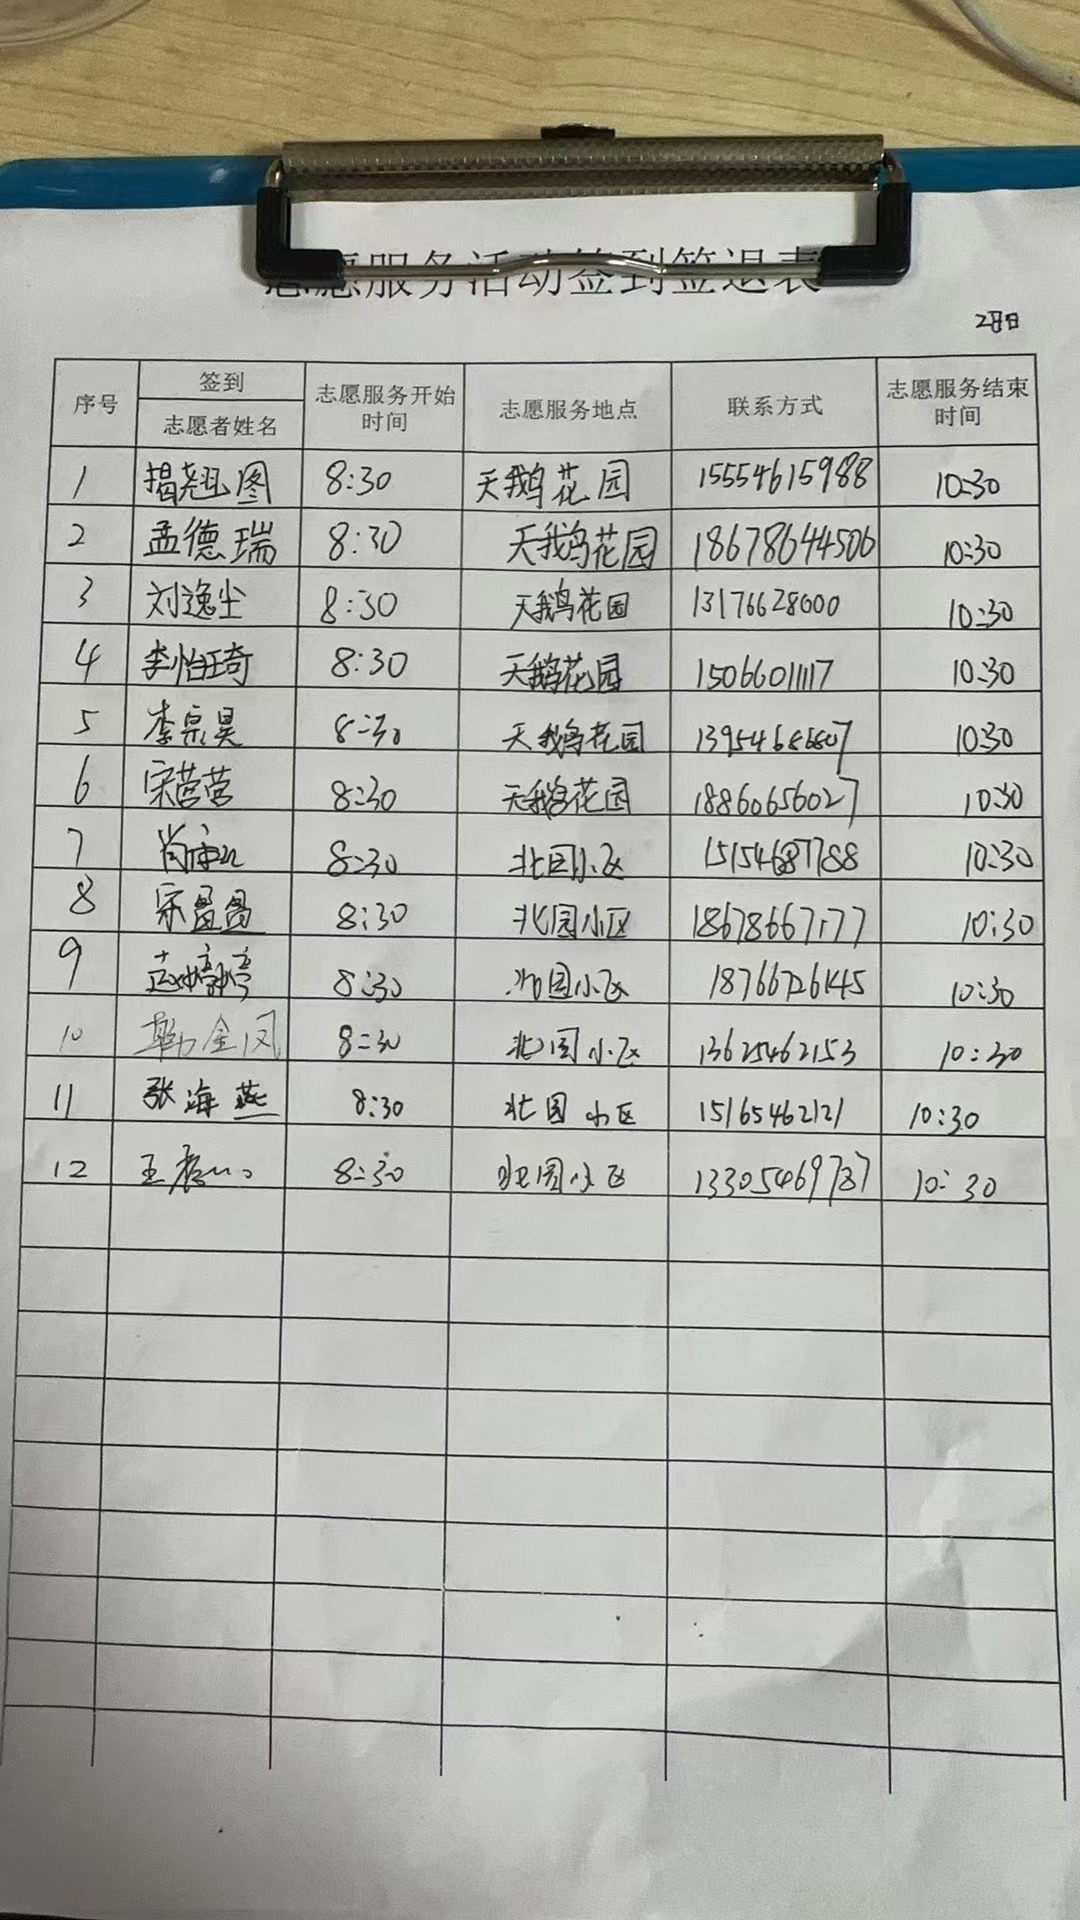 志愿服务活动签到签退表
序号 签到 志愿者姓名 志愿服务开始时间 志愿服务地点 联系方式 志愿服务结束时间
1 揭翘图 8:30 天鹅花园 15554615988 10:30
2 孟德瑞 8:30 天鹅花园 18678644506 10:30
3 刘逸尘 8:30 天鹅花园 13176628000 10:30
4 李怡琦 8:30 天鹅花园 15066011117 10:30
5 李宗昊 8:30 天鹅花园 13954686807 10:30
6 宋营营 8:30 天鹅花园 18860656027 10:30
7 8:30 北园小区 15154687788 10:30
8 宋昌昌 8:30 北园小区 18678667177 10:30
9 8:30 北园小区 18766726145 10:30
10 金凤 8:30 北园小区 13625462153 10:30
11 张海燕 8:30 北园小区 15165462121 10:30
12 王 8:30 北园小区 13305469787 10:30